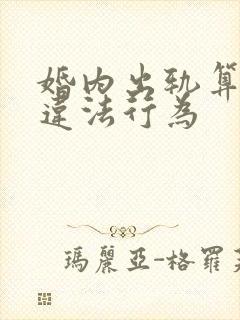 婚内出轨算
違法行為
瑪麗亞-格羅